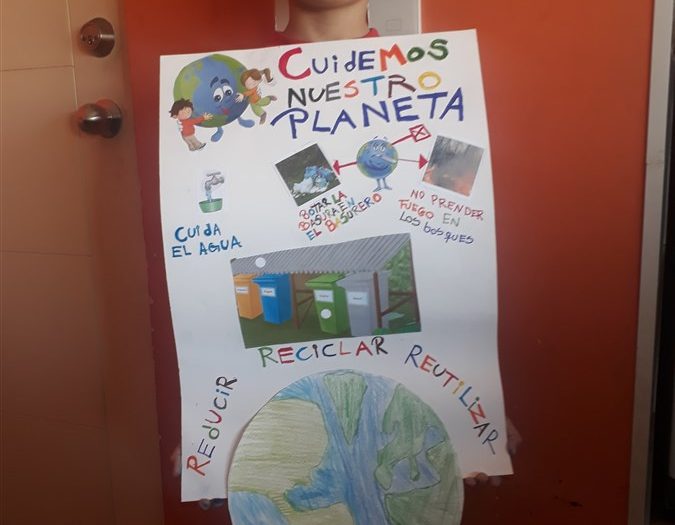 CUIdEMOS
NUESTRO
PLANETA
CUIDA
EL AGUA
BOTAR LA
BASURA EN
EL BASURERO
NO PRENDER
FUEGO EN
LOS bOSQUES
REdUCIR
RECICLAR
REUTILIZAR